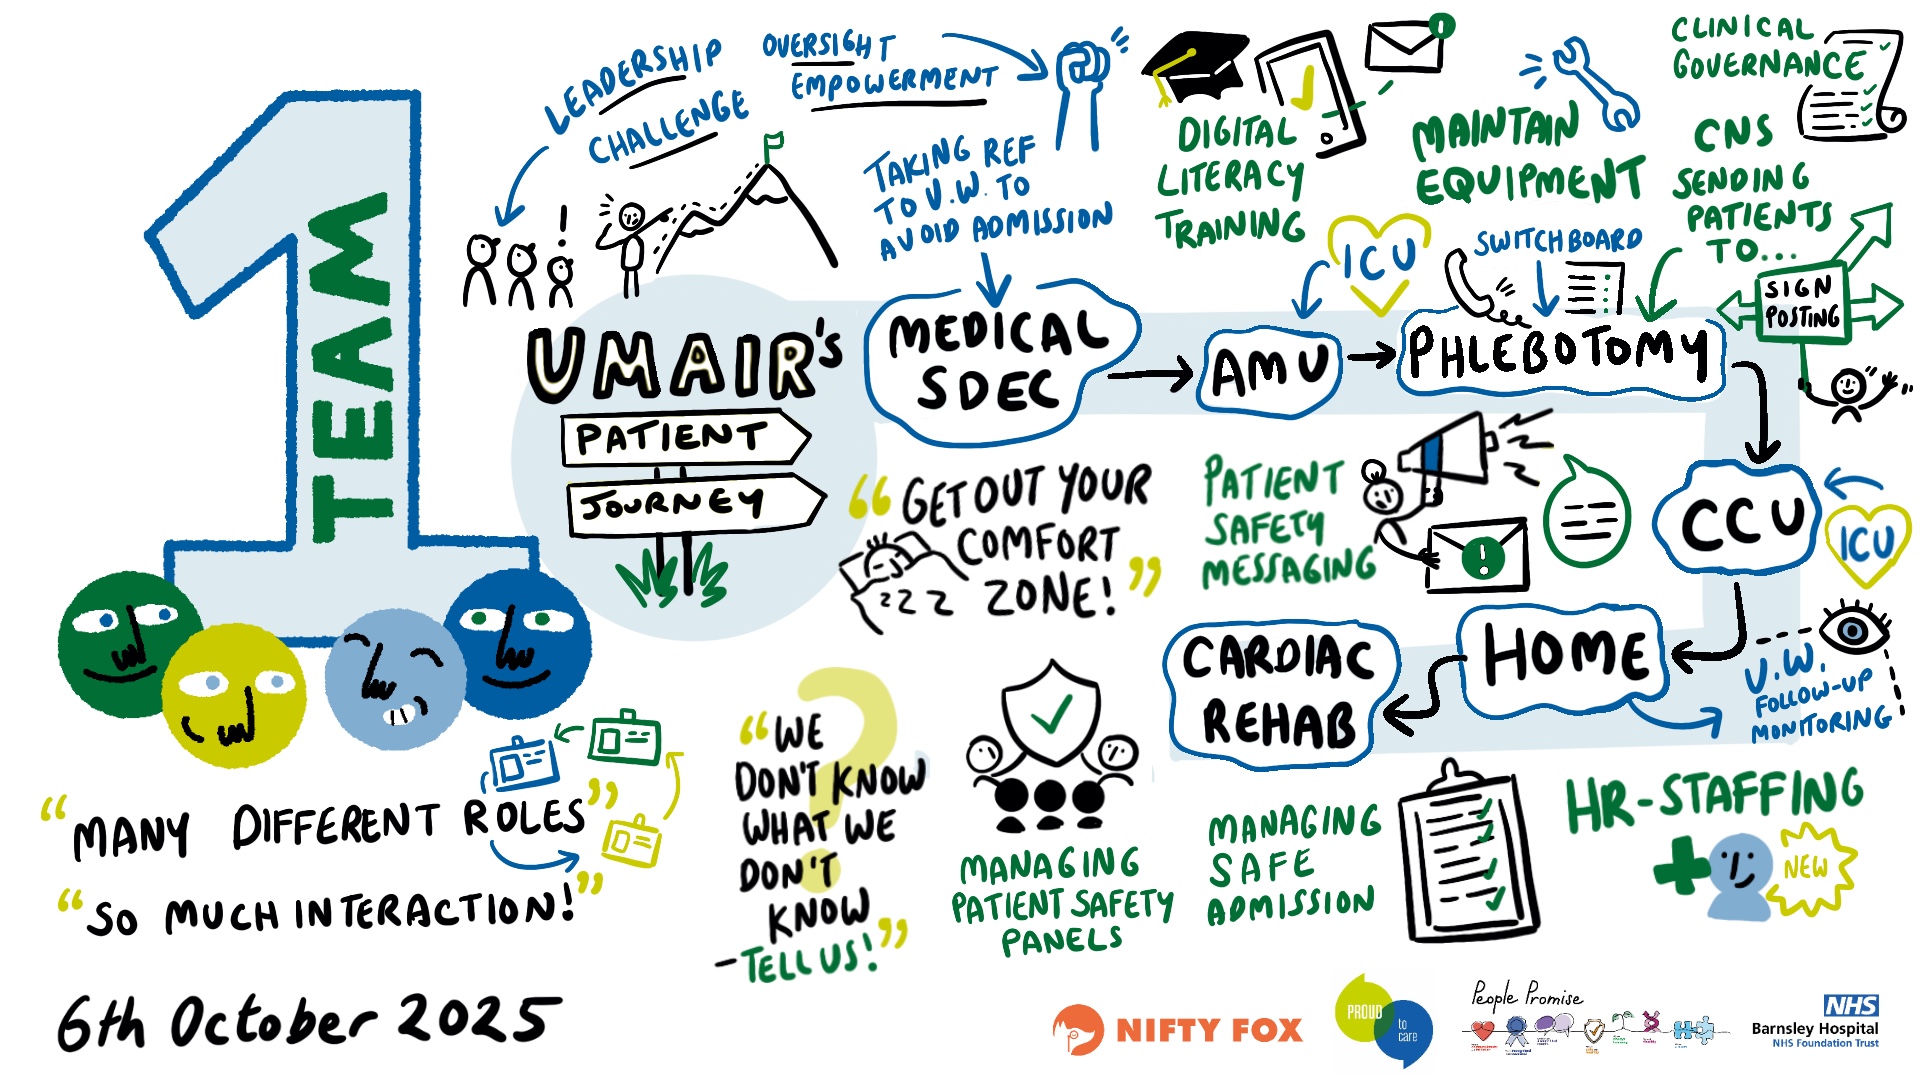 1
TEAM
LEADERSHIP
CHALLENGE
OVERSIGHT
EMPOWERMENT
TAKING REF
TO V.W. TO
AVOID ADMISSION
DIGITAL
LITERACY
TRAINING
MAINTAIN
EQUIPMENT
CLINICAL
GOVERNANCE
CNS
SENDING
PATIENTS
TO...
SIGN
POSTING
ICU
SWITCHBOARD
UMAIR'S
PATIENT
JOURNEY
MEDICAL
SDEC
AMU
PHLEBOTOMY
CCU
ICU
HOME
V.W.
FOLLOW-UP
MONITORING
CARDIAC
REHAB
"GET OUT YOUR
COMFORT
ZONE!"
ZZZ
PATIENT
SAFETY
MESSAGING
"MANY DIFFERENT ROLES"
"SO MUCH INTERACTION!"
"WE
DON'T KNOW
WHAT WE
DON'T
KNOW
-TELL US!"
MANAGING
PATIENT SAFETY
PANELS
MANAGING
SAFE
ADMISSION
HR-STAFFING
NEW
6th October 2025
NIFTY FOX
PROUD
to
care
People Promise
NHS
Barnsley Hospital
NHS Foundation Trust